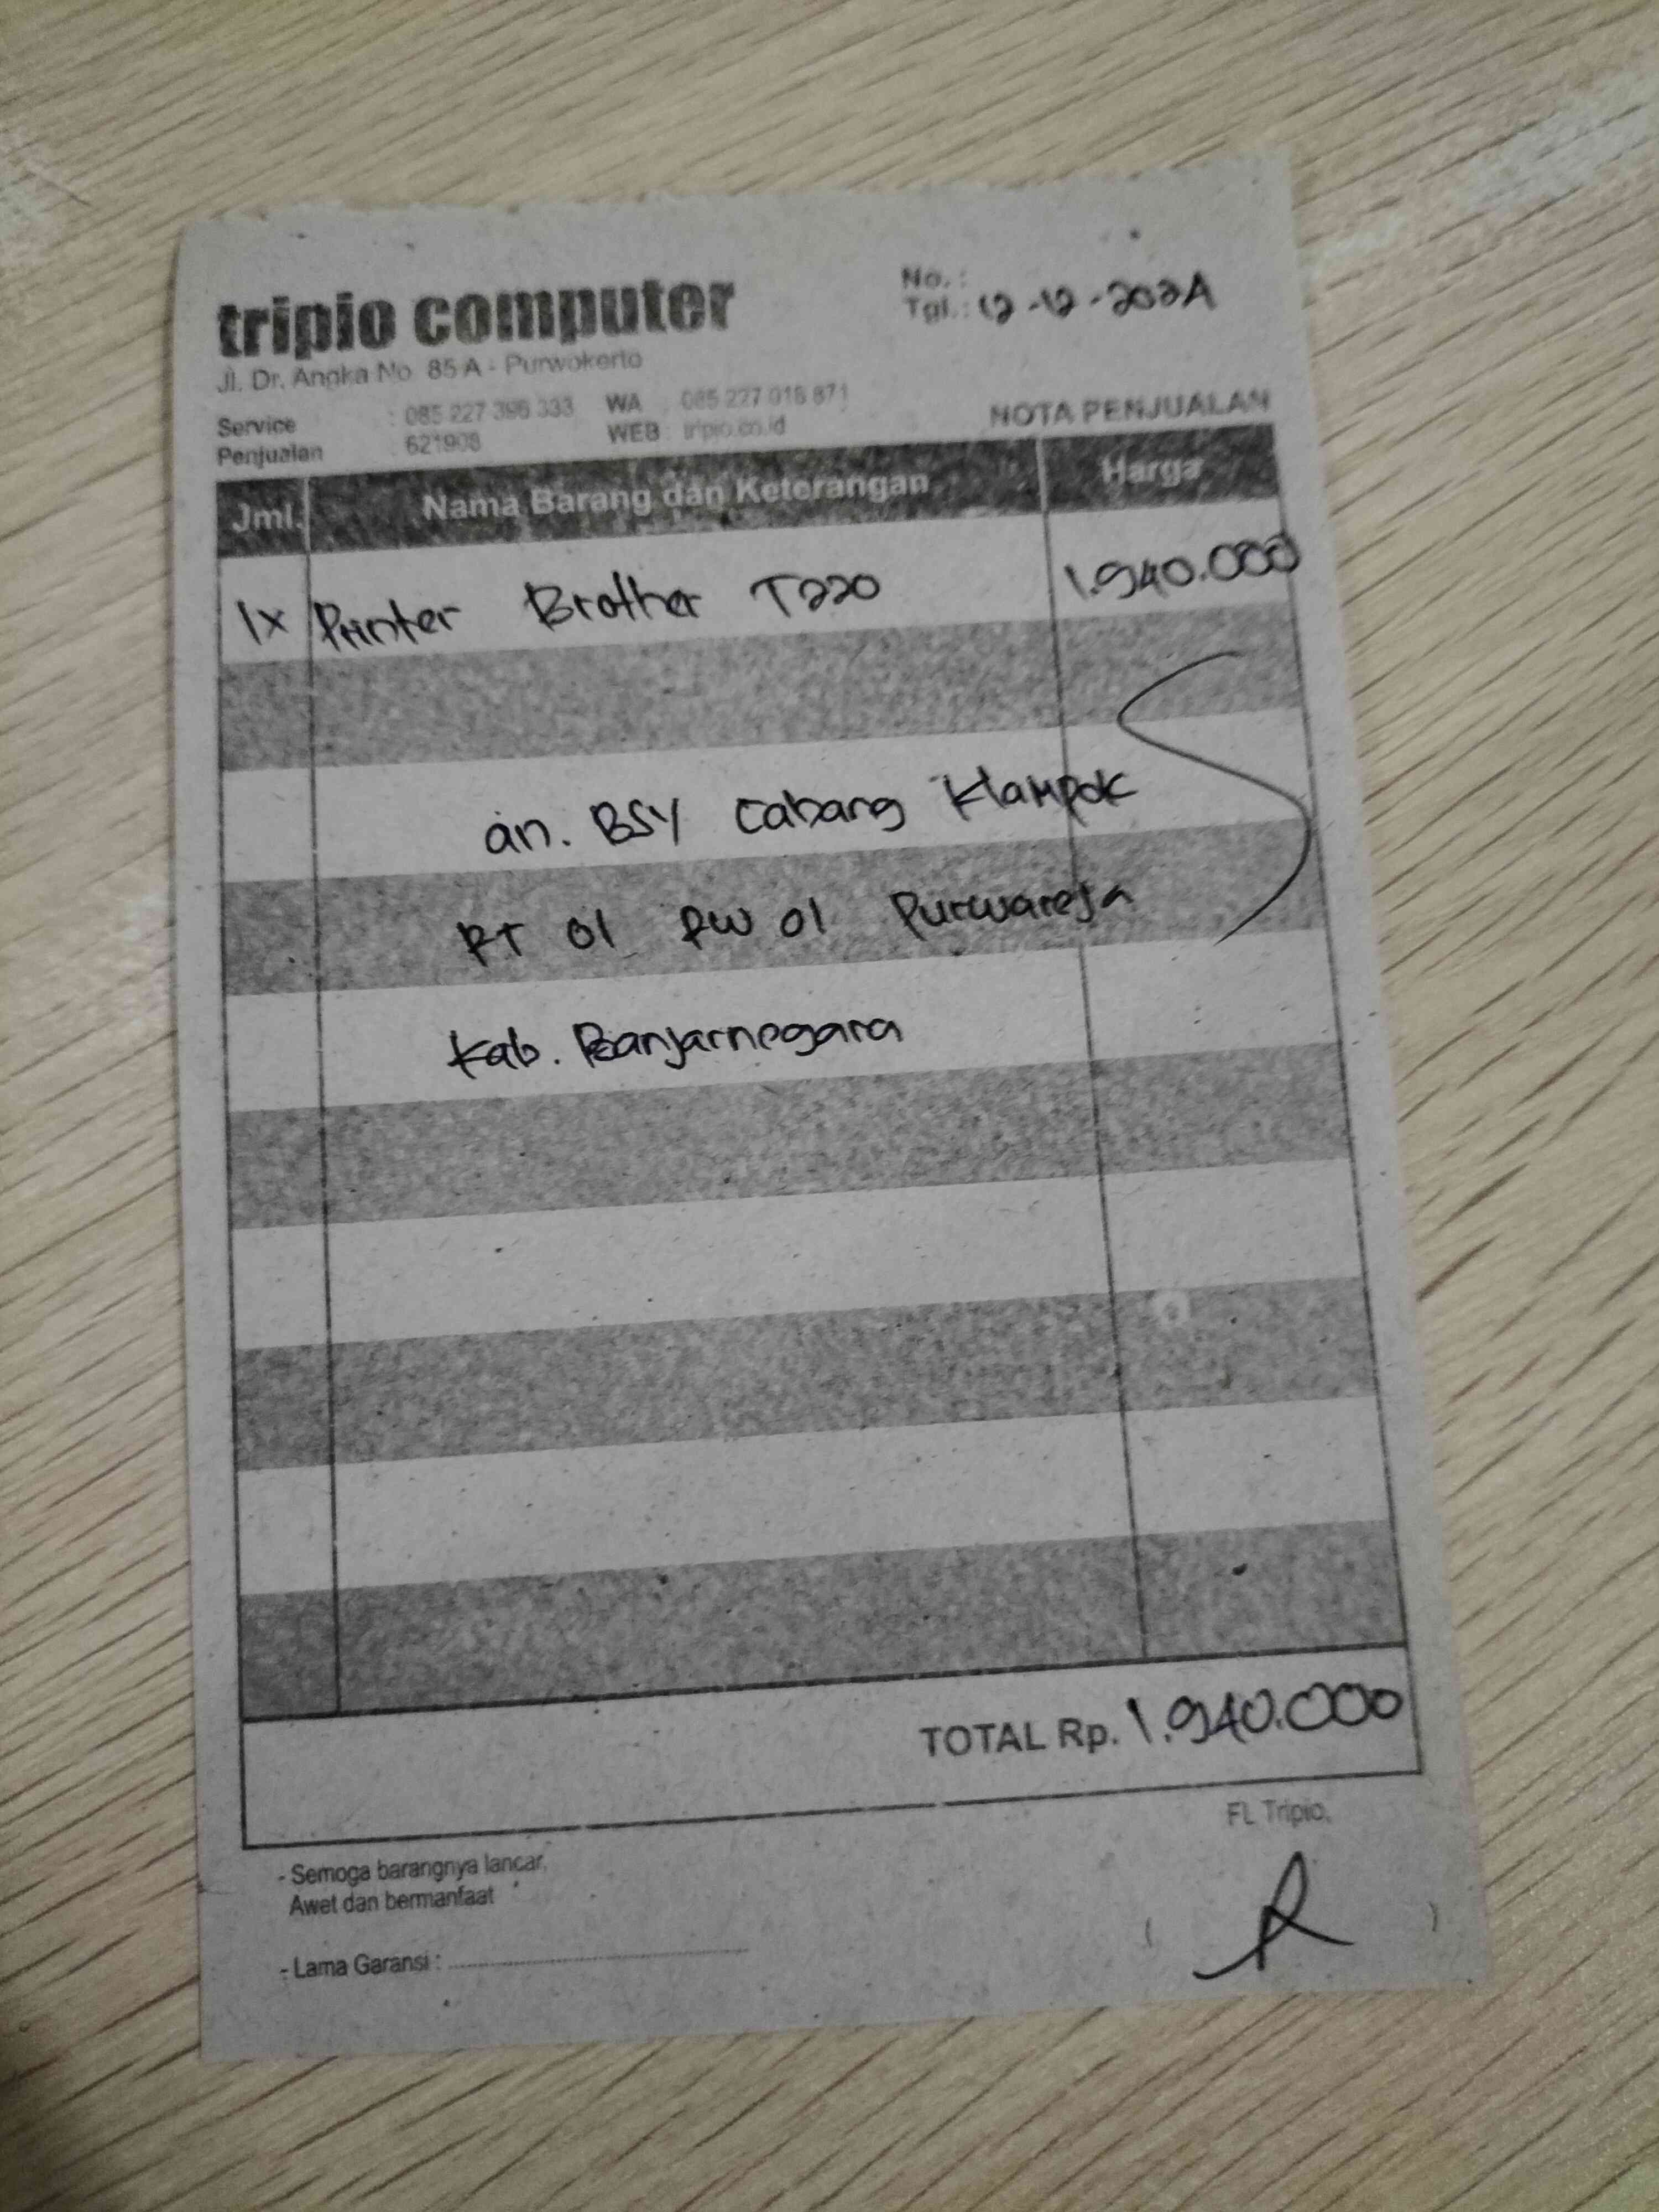 tripio computer
No. :
Tgl. : 12-12-2024
Jl. Dr. Angka No. 85 A - Purwokerto
Service : 085 227 396 333 WA : 085 227 016 871
Penjualan : 621908 WEB : tripio.co.id
NOTA PENJUALAN
Jml. Nama Barang dan Keterangan Harga
1x Printer Brother T220 1.940.000
an. BSY Cabang Klampok
RT 01 RW 01 Purwareja
Kab. Banjarnegara
TOTAL Rp. 1.940.000
FL Tripio,
- Semoga barangnya lancar,
Awet dan bermanfaat
- Lama Garansi :
( )